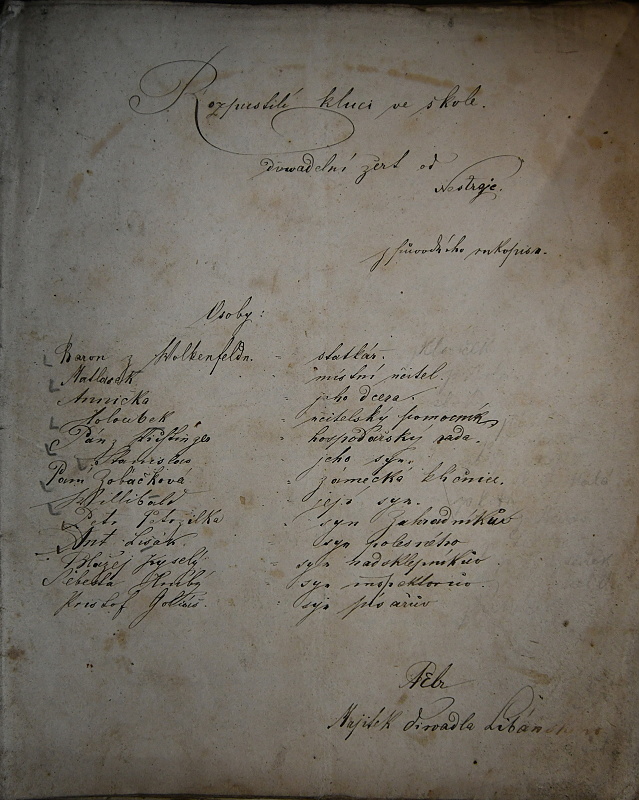 Rozpustilí kluci ve škole.
divadelní žert od
Nestroje.
z původního rukopisu.
Osoby:
Baron z Wolkenfeldn. - statkář.
Matlásek - místní učitel.
Annička - jeho dcera.
Holoubek - učitelský pomocník
Pan - hospodářský rada.
Stanislav - jeho syn.
Paní Zobáčková - zámecká klíčnice.
Willibald - její syn.
Petr Petržilka - syn zahradníkův
Ant. Lišák - syn polesného
Blažej Kyselý - syn nadsklepníkův.
Hrubý - syn inspektorův.
Kristof - syn písařův
Majitek divadla Libán